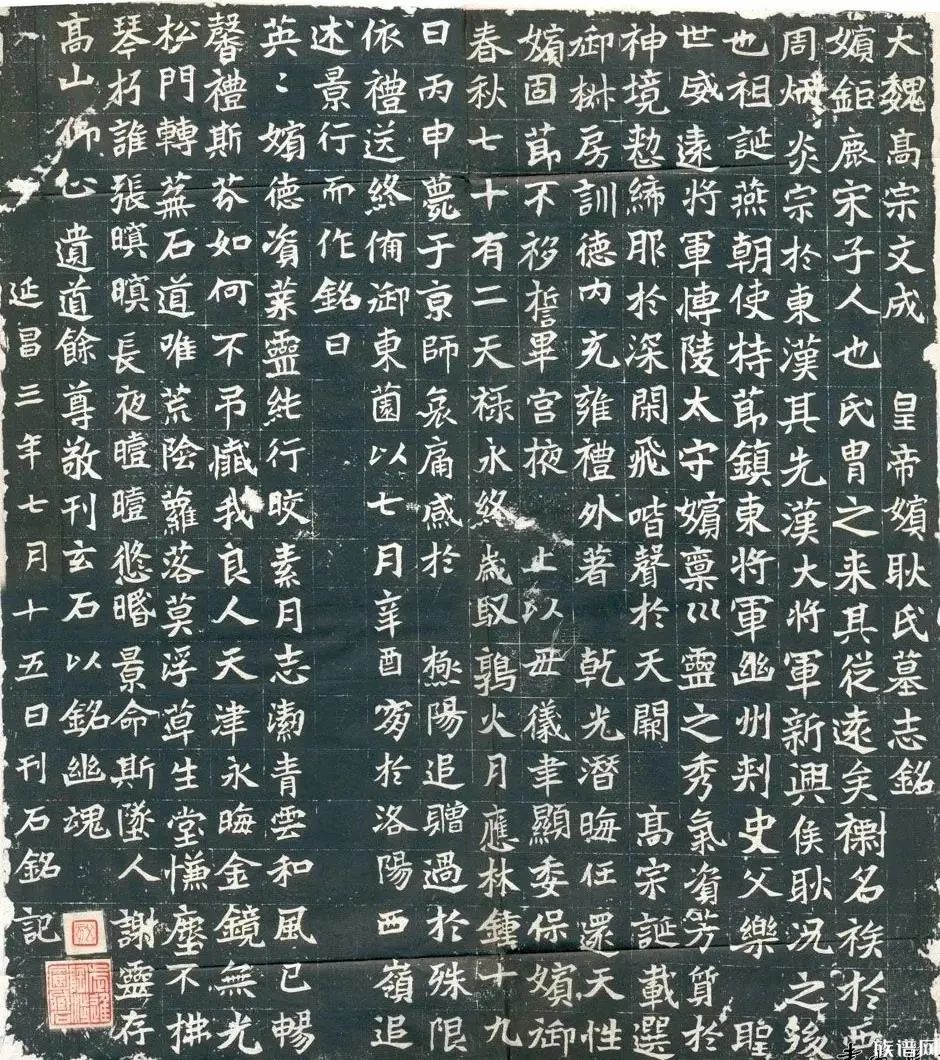 大魏高宗文成 皇帝嬪耿氏墓志銘
嬪鉅鹿宋子人也氏胄之来其従遠矣名族於西
周炳炎宗於東漢其先漢大將軍新興侯耿況之後
也祖誕燕朝使持莭鎮東將軍幽州刾史父樂 聖
世威遠將軍博陵太守嬪稟巛靈之秀氣資芳質於
神境締服於深閑飛喈聲於天閫 高宗誕載選
御椒房訓德內充雍禮外著乾光潛晦任還天性
嬪固莭不移誓畢宮掖 上以毋儀聿顯委保嬪御
春秋七十有二天祿永終歲馭鶉火月應林鍾十九
日丙申薨于亰師哀痛感於 極陽追贈過於殊限
依禮送終備御東薗以七月辛酉窆於洛陽西嶺追
述景行而作銘曰
英〻嬪德資葉靈純行晈素月志潔青雲和風已暢
馨禮斯芬如何不吊殲我良人天津永晦金鏡無光
松門轉蕪石道唯荒陰蘿落莫浮草生堂慊塵不拂
琴朽誰張暝暝長夜曀曀悠昬景命斯墜人謝靈存
高山仰止遺道餘尊敬刊玄石以銘幽魂
延昌三年七月十五日刊石銘記
族谱网